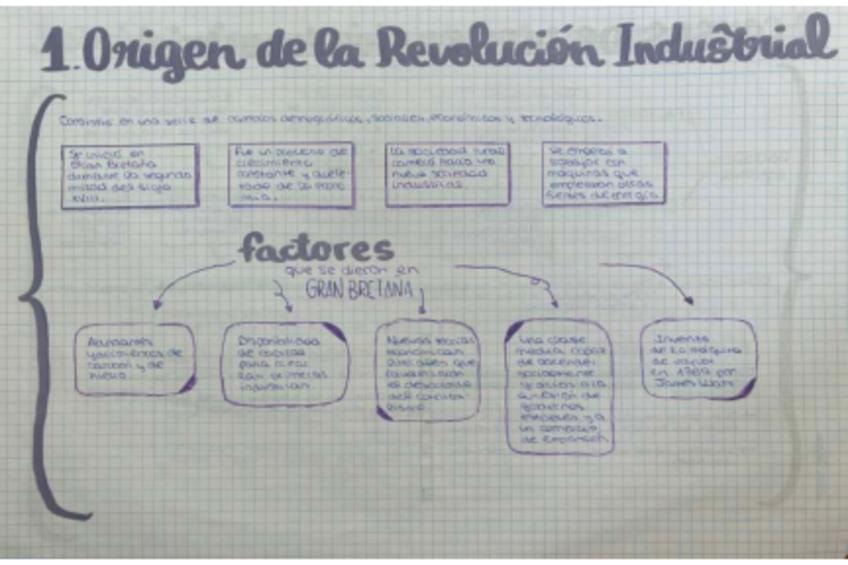 1. Origen de la Revolución Industrial
Consistió en una serie de cambios demográficos, sociales, económicos y tecnológicos.
Se inició en
Gran Bretaña
durante la segunda
mitad del siglo
XVIII.
Fue un proceso de
crecimiento
constante y acele-
rado de la
La sociedad rural
cambió hacia una
nueva sociedad
industrial.
Se empezó a
trabajar con
máquinas que
empleaban otras
fuentes de energía.
factores
que se dieron en
GRAN BRETANA
yacimientos de
carbón y de
hierro.
Disponibilidad
de capital
para
las primeras
industrias.
Nuevas teorías
económicas
que
el desarrollo
del capita-
lismo
Una clase
media capaz
de ascender
socialmente
gracias a la
de
y a
un comercio
de expansión
Invento
de la máquina
de vapor
en 1769 por
James Watt